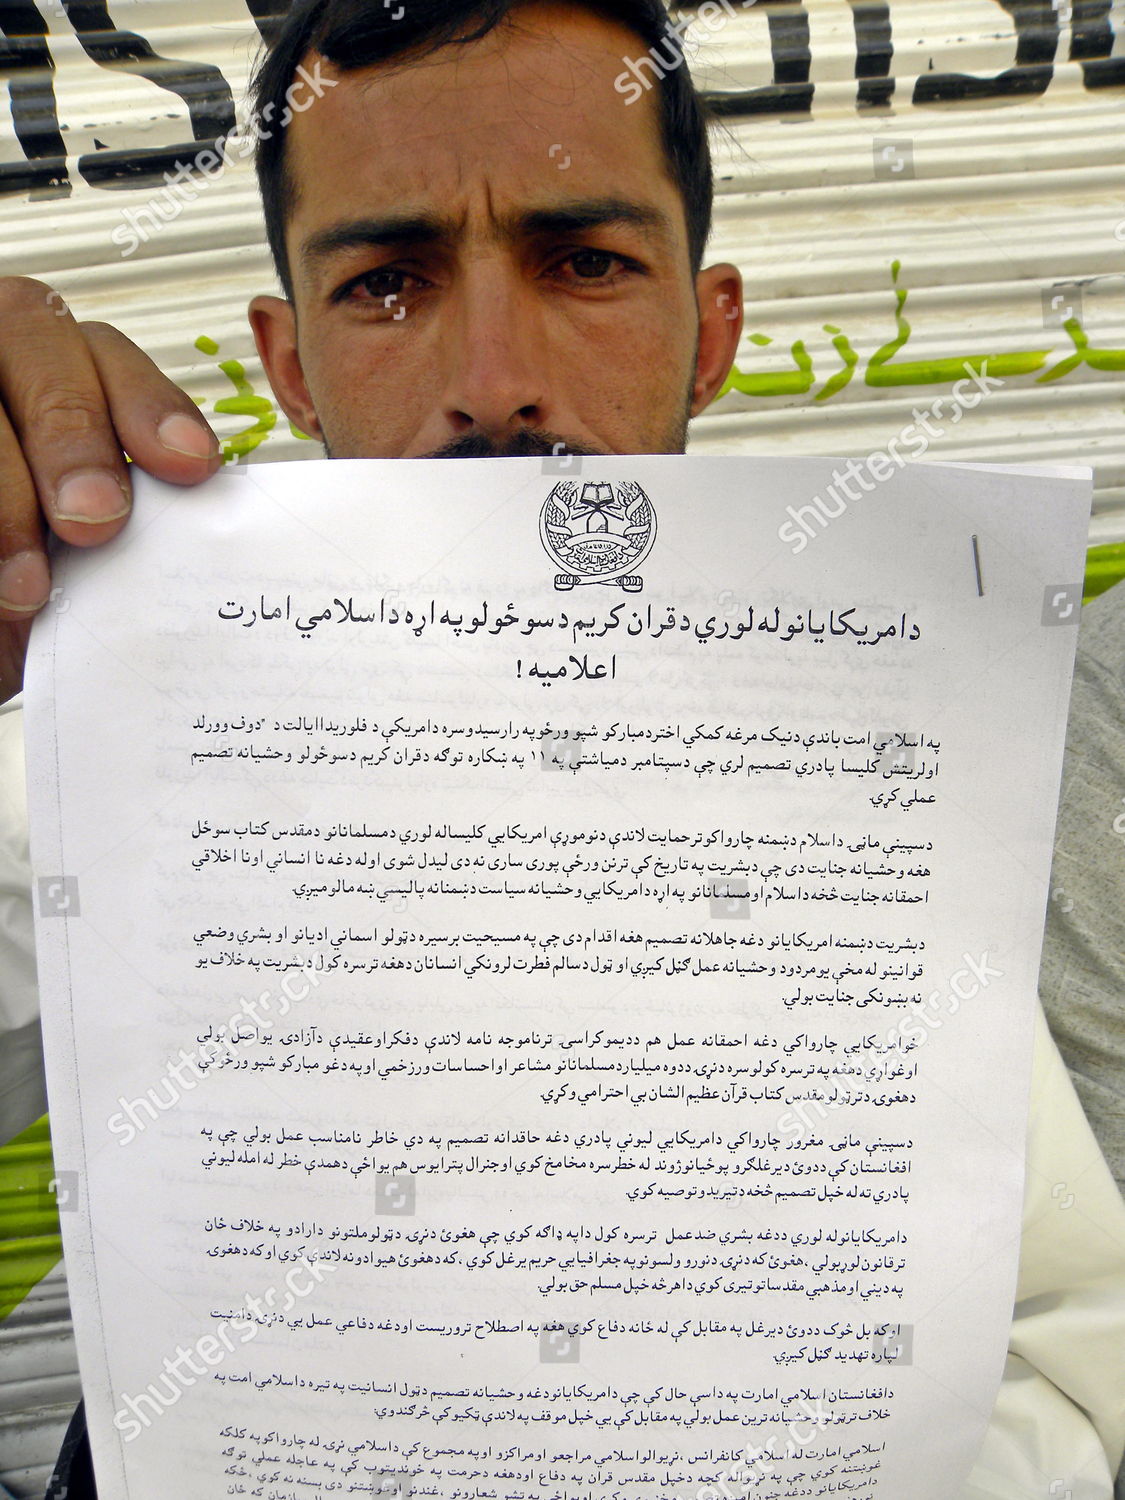 دامریکایانوله لوري دقران کریم دسوځولوپه اړه داسلامي امارت
اعلامیه !
په اسلامي امت باندې دنیک مرغه کمکي اختردمبارکو شپو ورځوپه رارسیدوسره دامریکې د فلوریداایالت د "دوف وورلد
اولریتش کلیسا پادري تصمیم لري چې دسپتامبر دمیاشتې په ۱۱ په ښکاره توګه دقران کریم دسوځولو وحشیانه تصمیم
عملي کړي.
دسپینې ماڼۍ داسلام دښمنه چارواکوترحمایت لاندې دنوموړې امریکایي کلیساله لوري دمسلمانانو دمقدس کتاب سوځل
هغه وحشیانه جنایت دی چې دبشریت په تاریخ کې ترنن ورځې پورې ساری نه دی لیدل شوی اوله دغه نا انساني اونا اخلاقي
احمقانه جنایت څخه داسلام اومسلمانانو په اړه دامریکایي وحشیانه سیاست دښمنانه پالیسي ښه مالومیږي.
دبشریت دښمنه امریکایانو دغه جاهلانه تصمیم هغه اقدام دی چې په مسیحیت برسیره دټولو اسماني ادیانو او بشري وضعي
قوانینو له مخې یومردود وحشیانه عمل ګڼل کیږي او ټول دسالم فطرت لرونکي انسانان دهغه ترسره کول دبشریت په خلاف یو
نه بښونکی جنایت بولي.
خوامریکایي چارواکي دغه احمقانه عمل هم ددیموکراسۍ ترناموجه نامه لاندې دفکراوعقیدې دآزادۍ یواصل بولي
اوغواړي دهغه په ترسره کولوسره دنړۍ ددوه میلیاردمسلمانانو مشاعر اواحساسات ورزخمي اوپه دغو مبارکو شپو ورځو کې
دهغوی دترټولومقدس کتاب قرآن عظیم الشان بي احترامي وکړي.
دسپینې ماڼۍ مغرور چارواکي دامریکایي لیوني پادري دغه حاقدانه تصمیم په دې خاطر نامناسب عمل بولي چې په
افغانستان کې ددوئ دیرغلګرو پوځیانوژوند له خطرسره مخامخ کوي اوجنرال پترایوس هم یواځې دهمدې خطر له امله لیوني
پادري ته له خپل تصمیم څخه دتیریدوتوصیه کوي.
دامریکایانوله لوري ددغه بشري ضدعمل ترسره کول داپه ډاګه کوي چې هغوئ دنړۍ دټولوملتونو دارادو په خلاف ځان
ترقانون لوړبولي ، هغوئ که دنړۍ دنورو ولسونوپه جغرافیایي حریم یرغل کوي ، که دهغوئ هیوادونه لاندې کوي اوکه دهغوی
په دیني اومذهبي مقدساتوتیری کوي داهرڅه خپل مسلم حق بولي.
اوکه بل څوک ددوئ دیرغل په مقابل کې له ځانه دفاع کوي هغه په اصطلاح تروریست اودغه دفاعي عمل یې دنړۍ دامنیت
لپاره تهدید ګڼل کیږي.
دافغانستان اسلامي امارت په داسې حال کې چې دامریکایانودغه وحشیانه تصمیم دټول انسانیت په تیره داسلامي امت په
خلاف ترټولو وحشیانه ترین عمل بولي په مقابل کې یې خپل موقف په لاندې ټکیوکې څرګندوي:
اسلامي امارت له اسلامي کانفرانس ، نړیوالواسلامي مراجعو اومراکزو اوپه مجموع کې داسلامي نړۍ له چارواکوپه کلکه
غوښتنه کوي چې په نړیواله کچه دخپل مقدس قران په دفاع اودهغه دحرمت په خوندیتوب کې په عاجله عملي توګه
shutterstock